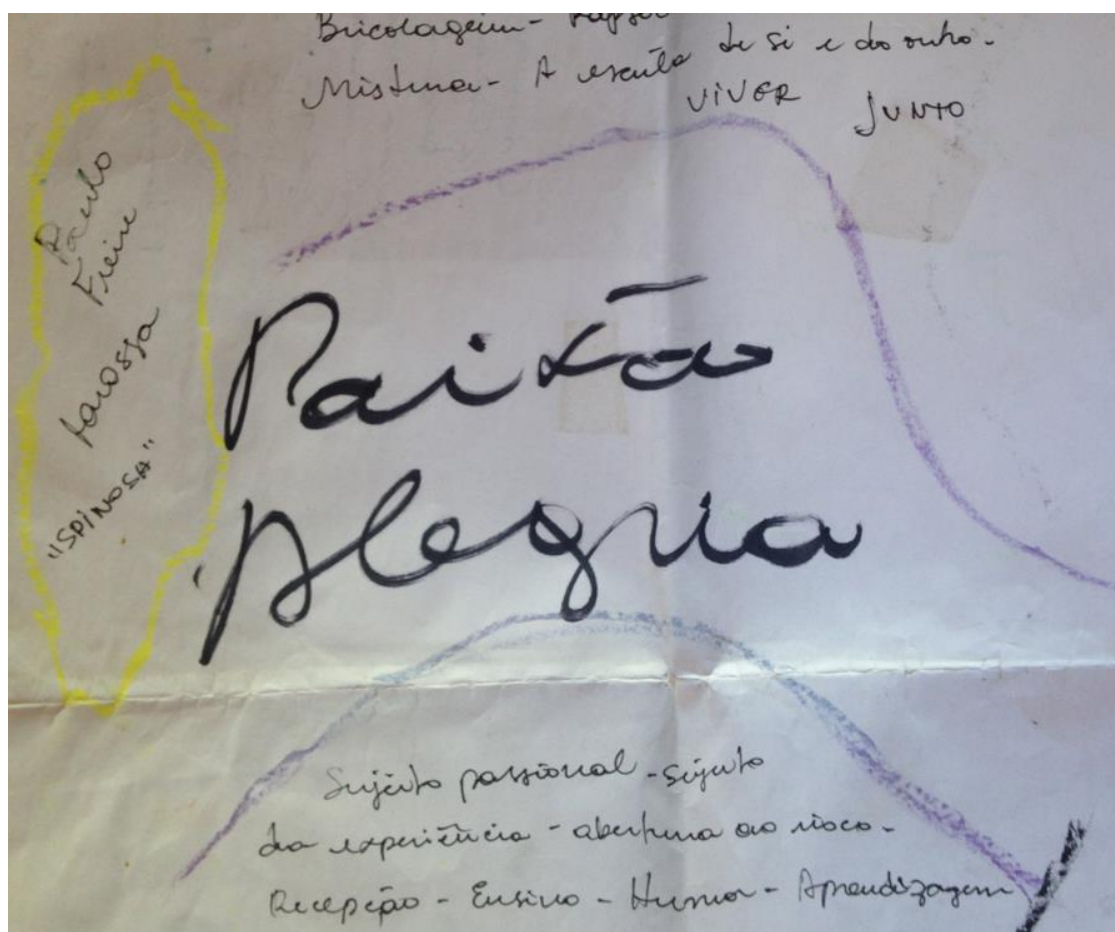 Bricolagem -
Mistura - A escuta de si e do outro.
VIVER JUNTO
Paulo
Freire
Larossa
"SPINOSA"
Paixão
Alegria
Sujeito passional - sujeito
da experiência - abertura ao risco.
Recepção - Ensino - Humor - Aprendizagem